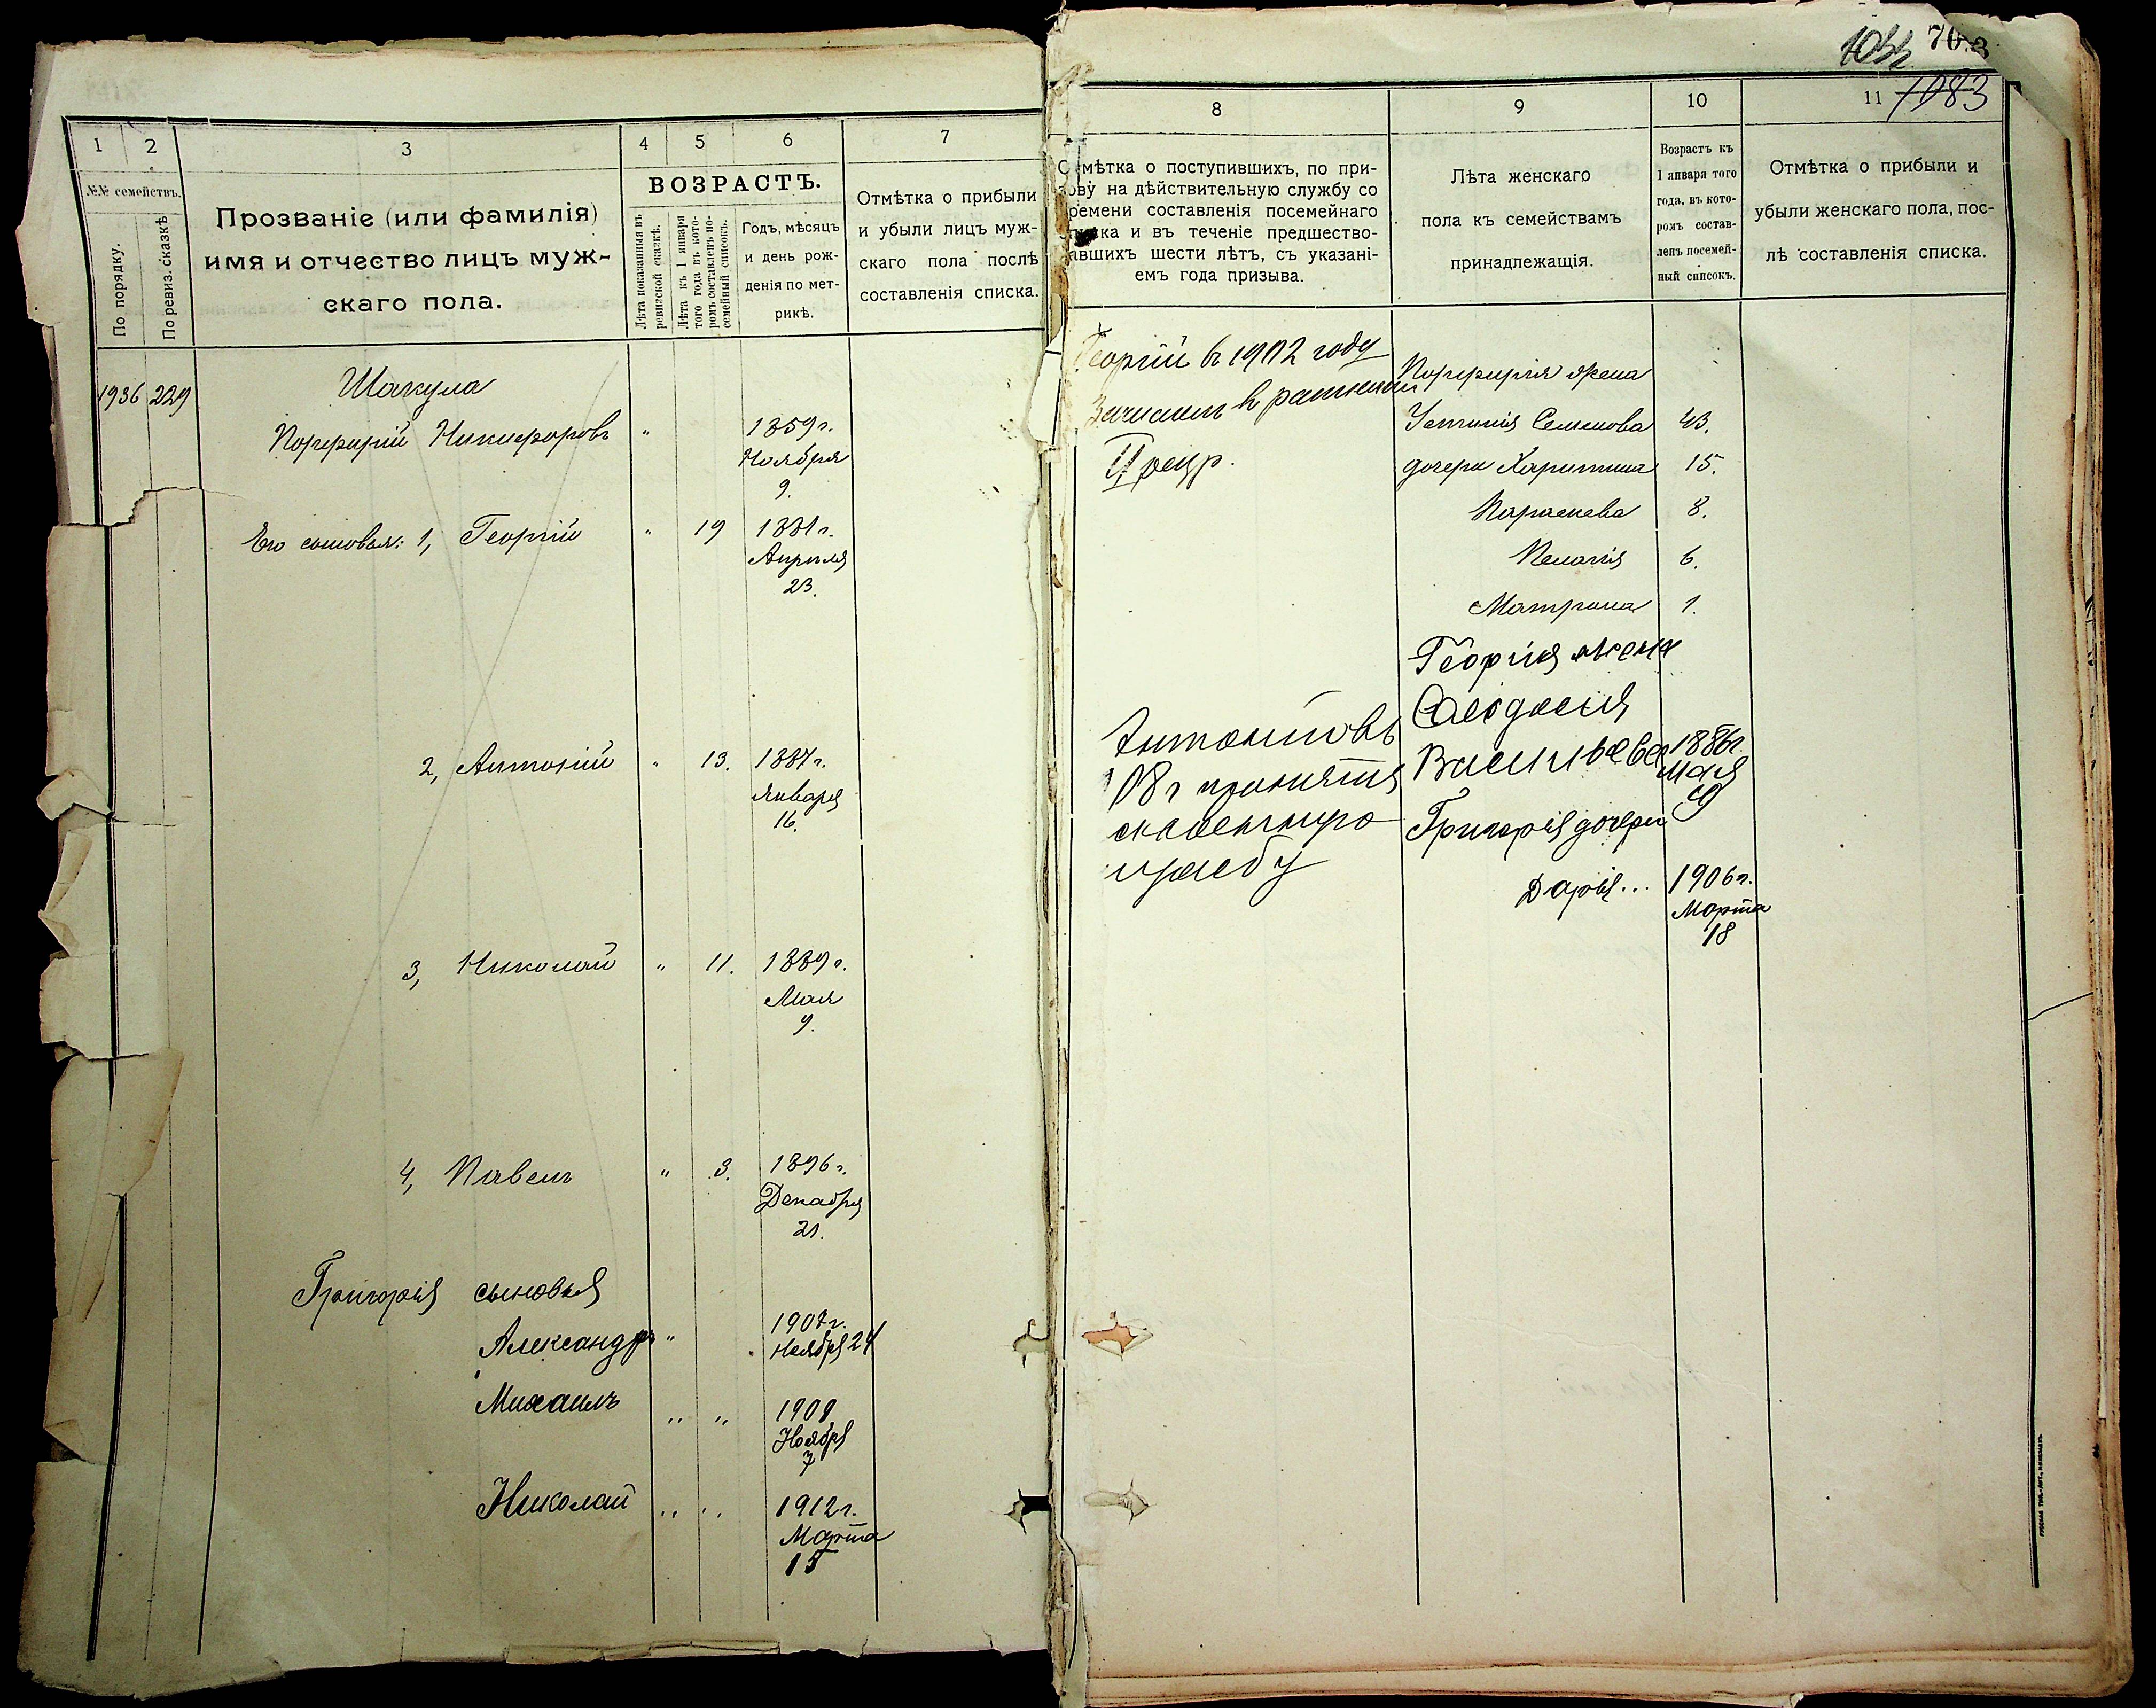 1
2
3
4
5
6
7
№№ семействъ.
По порядку.
По ревиз. сказкѣ
Прозваніе (или фамилія)
имя и отчество лицъ муж-
скаго пола.
ВОЗРАСТЪ.
Лѣта показанныя въ
ревизской сказкѣ.
Лѣта къ 1 января
того года въ кото-
ромъ составленъ по-
семейный списокъ.
Годъ, мѣсяцъ
и день рож-
денія по мет-
рикѣ.
Отмѣтка о прибыли
и убыли лицъ муж-
скаго пола послѣ
составленія списка.
1936 229
Шакула
Порфирій Никифоровъ " 1859 г.
Ноября
9.
Его сыновья: 1, Георгій " 19 1881 г.
Апрѣля
23.
2, Антоній " 13. 1887 г.
Января
16.
3, Николай " 11. 1889 г.
Мая
9.
4, Павелъ " 3. 1896 г.
Декабря
21.
Григорія сыновья
Александръ " 1907 г.
Ноября 24
Михаилъ " " 1909
Ноября
7
Николай " " 1912 г.
Марта
15
70
1083
8
9
10
11
Отмѣтка о поступившихъ, по при-
зову на дѣйствительную службу со
времени составленія посемейнаго
списка и въ теченіе предшество-
вавшихъ шести лѣтъ, съ указані-
емъ года призыва.
Лѣта женскаго
пола къ семействамъ
принадлежащія.
Возрастъ къ
1 января того
года, въ кото-
ромъ состав-
ленъ посемей-
ный списокъ.
Отмѣтка о прибыли и
убыли женскаго пола, пос-
лѣ составленія списка.
Георгій въ 1902 году
Зачисленъ в ратники
II разр.
Порфирія жена
Устинія Семенова 43.
дочери Харитина 15.
Параскева 8.
Пелагія 6.
Матрона 1.
Георгія жена
Феодосія
Васильева 1886 г.
Мая
9
Григорія дочери
Дарія... 1906 г.
Марта
18
Антоній въ
08 г принятъ
службу